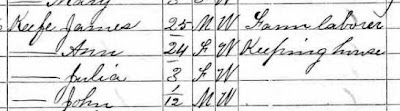 — Mary
Keefe James 25 M W Farm laborer
— Ann 24 F W Keeping house
— Julia 3 F W
— John 1/12 M W